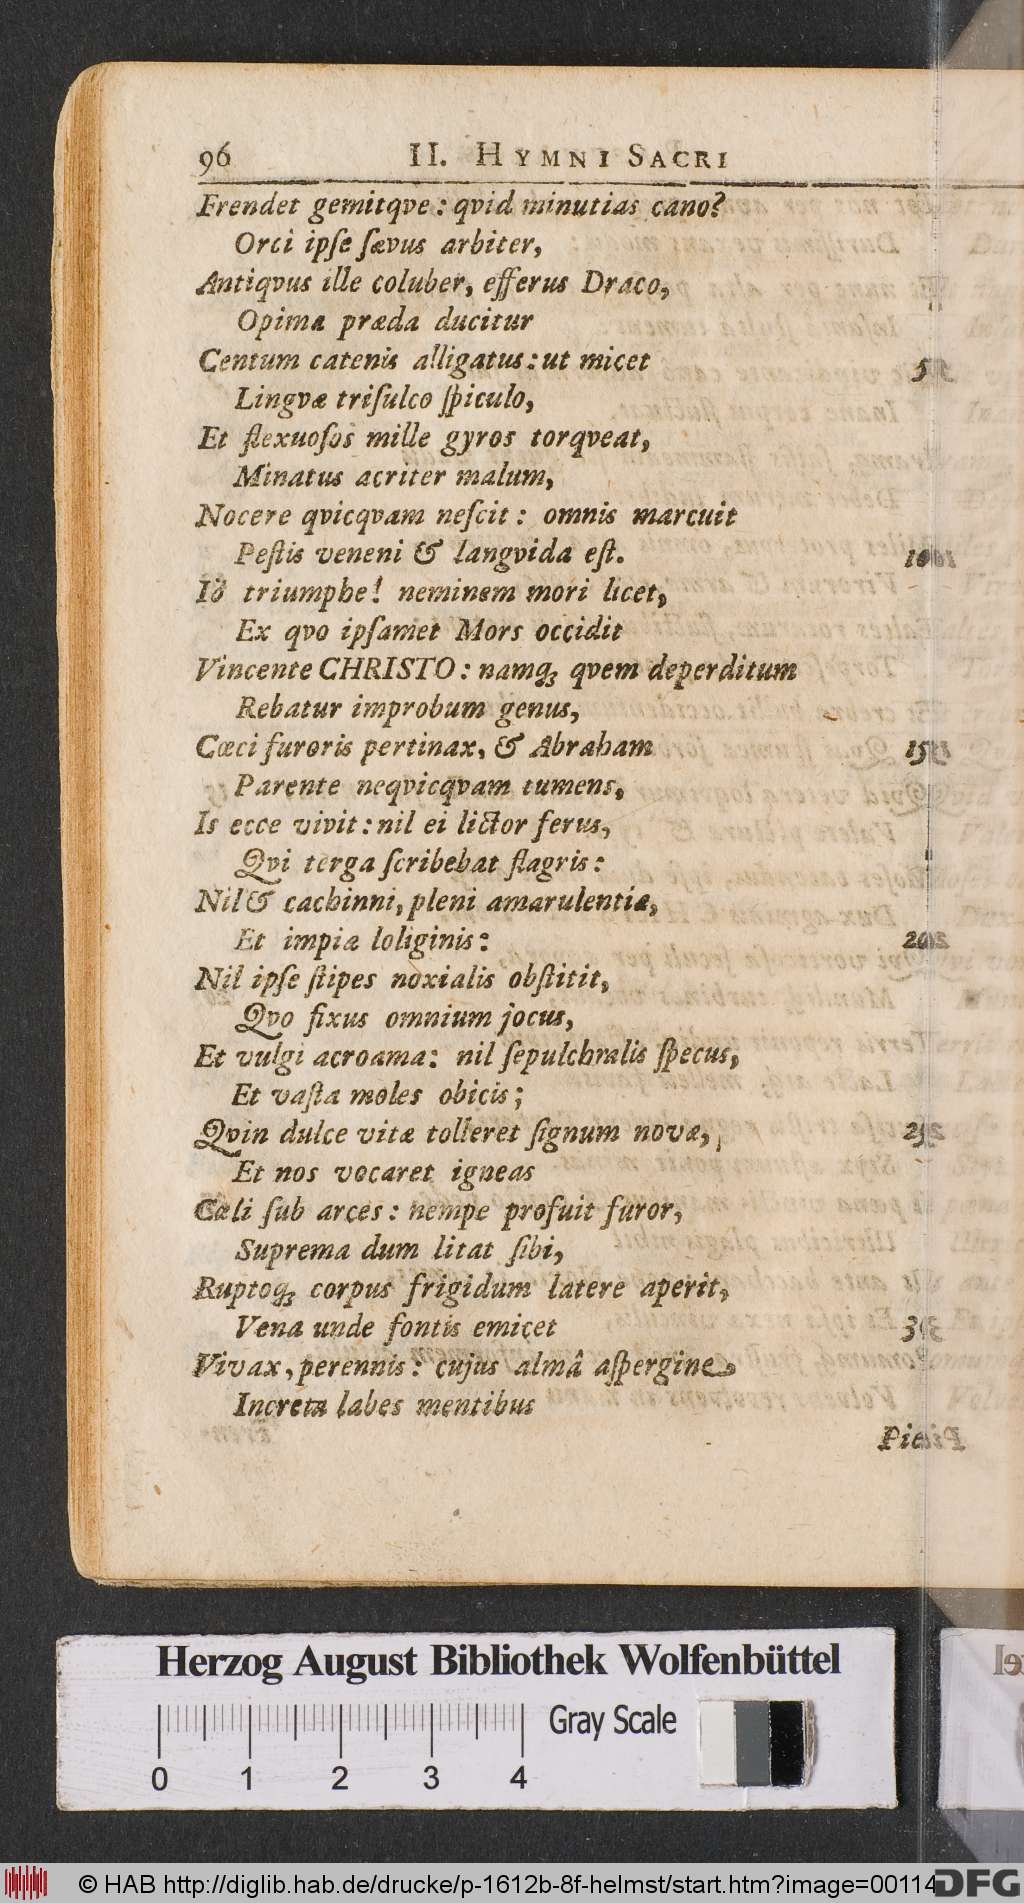 96 II. HYMNI SACRI
Frendet gemitqve: qvid minutias cano?
Orci ipſe ſævus arbiter,
Antiqvus ille coluber, efferus Draco,
Opima præda ducitur
Centum catenis alligatus: ut micet 5
Lingvæ triſulco ſpiculo,
Et flexuoſos mille gyros torqveat,
Minatus acriter malum,
Nocere qvicqvam neſcit: omnis marcuit
Peſtis veneni & langvida eſt. 10
Iö triumphe! neminem mori licet,
Ex qvo ipſamet Mors occidit
Vincente CHRISTO: namq; qvem deperditum
Rebatur improbum genus,
Cœci furoris pertinax, & Abraham 15
Parente neqvicqvam tumens,
Is ecce vivit: nil ei lictor ferus,
Qvi terga ſcribebat flagris:
Nil & cachinni, pleni amarulentiæ,
Et impia loliginis: 20
Nil ipſe ſtipes noxialis obſtitit,
Qvo fixus omnium jocus,
Et vulgi acroama: nil ſepulchralis ſpecus,
Et vaſta moles obicis;
Qvin dulce vitæ tolleret ſignum novæ, 25
Et nos vocaret igneas
Cæli ſub arces: nempe profuit furor,
Suprema dum litat ſibi,
Ruptoq; corpus frigidum latere aperit,
Vena unde fontis emicet 3
Vivax, perennis: cujus almâ aſpergine
Increta labes mentibus
Pie
Herzog August Bibliothek Wolfenbüttel
Gray Scale
0 1 2 3 4
© HAB http://diglib.hab.de/drucke/p-1612b-8f-helmst/start.htm?image=00114
DFG